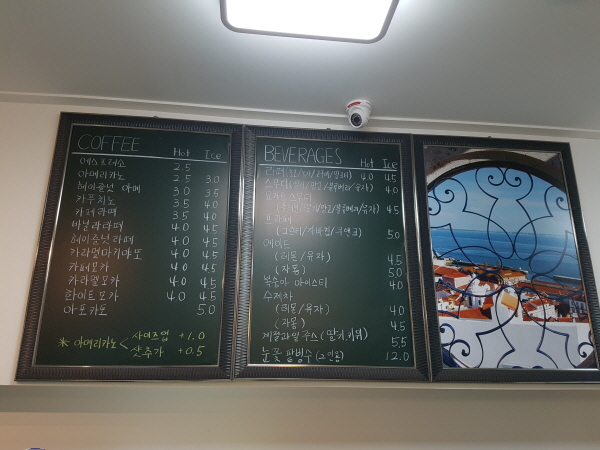 COFFEE Hot Ice
에스프레소 2.5
아메리카노 2.5 3.0
헤이즐넛 아메 3.0 3.5
카푸치노 3.5 4.0
카페라떼 3.5 4.0
바닐라라떼 4.0 4.5
헤이즐넛라떼 4.0 4.5
카라멜마키아또 4.0 4.5
카페모카 4.0 4.5
카라멜모카 4.0 4.5
화이트모카 4.0 4.5
아포카토 5.0
* 아메리카노 < 사이즈업 +1.0
샷추가 +0.5
BEVERAGES Hot Ice
4.0 4.5
4.0
4.5
프라페
5.0
에이드
(레몬/유자) 4.5
(자몽) 5.0
복숭아 아이스티 4.0
수제차
(레몬/유자) 4.0
(자몽) 4.5
계절과일쥬스(딸기,키위)
5.5
눈꽃 팥빙수(2인용) 12.0